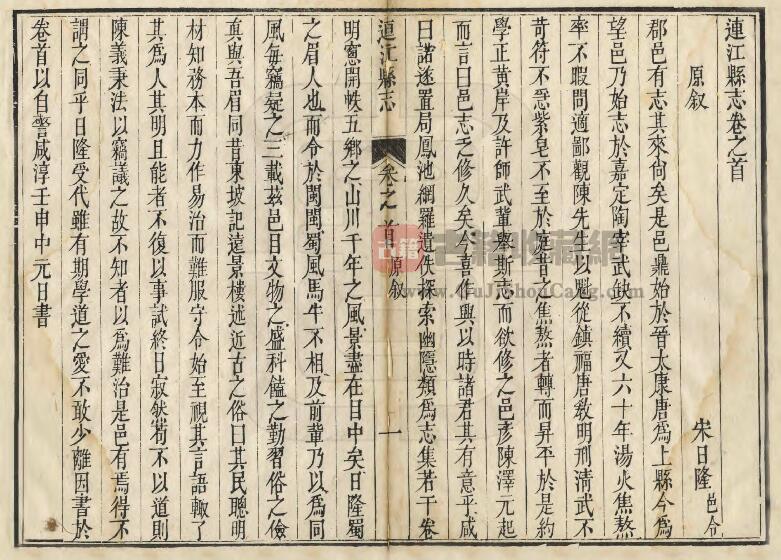 連江縣志卷之首
原叙
宋日隆邑令
郡邑有志其來尙矣是邑鼎始於晉太康唐爲上縣今爲
望邑乃始志於嘉定陶宰武缺不續又六十年湯火焦熬
率不暇問適鄙觀陳先生以魁從鎮福唐敎明刑淸武不
苛符不急紫皂不至於庭昔之焦熬者轉而昇平於是約
學正黄岸及許師武董舉斯志而欲修之邑彥陳澤元起
而言曰邑志之修久矣公喜作興以時諸君其有意乎咸
曰諾遂置局鳳池網羅遺佚探索幽隱類爲志集若干卷
連江縣志
卷之首
原叙
一
明窓開帙五鄉之山川千年之風景盡在目中矣日隆蜀
之眉人也而令於閩閩蜀風馬牛不相及前軰乃以爲同
風每竊疑之三載茲邑目文物之盛科儘之勤習俗之儉
真與吾眉同昔東坡記遠景樓述近古之俗曰其民聰明
材知務本而力作易治而難服守令始至視其言語輙了
其爲人其明且能者不復以事試終日寂然茍不以道則
陳義秉法以竊議之故不知者以爲難治是邑有焉得不
謂之同乎日隆受代雖有期學道之愛不敢少離因書於
卷首以自警咸淳壬申中元日書
古籍
书籍收藏網
www.GuJiShouCang.com